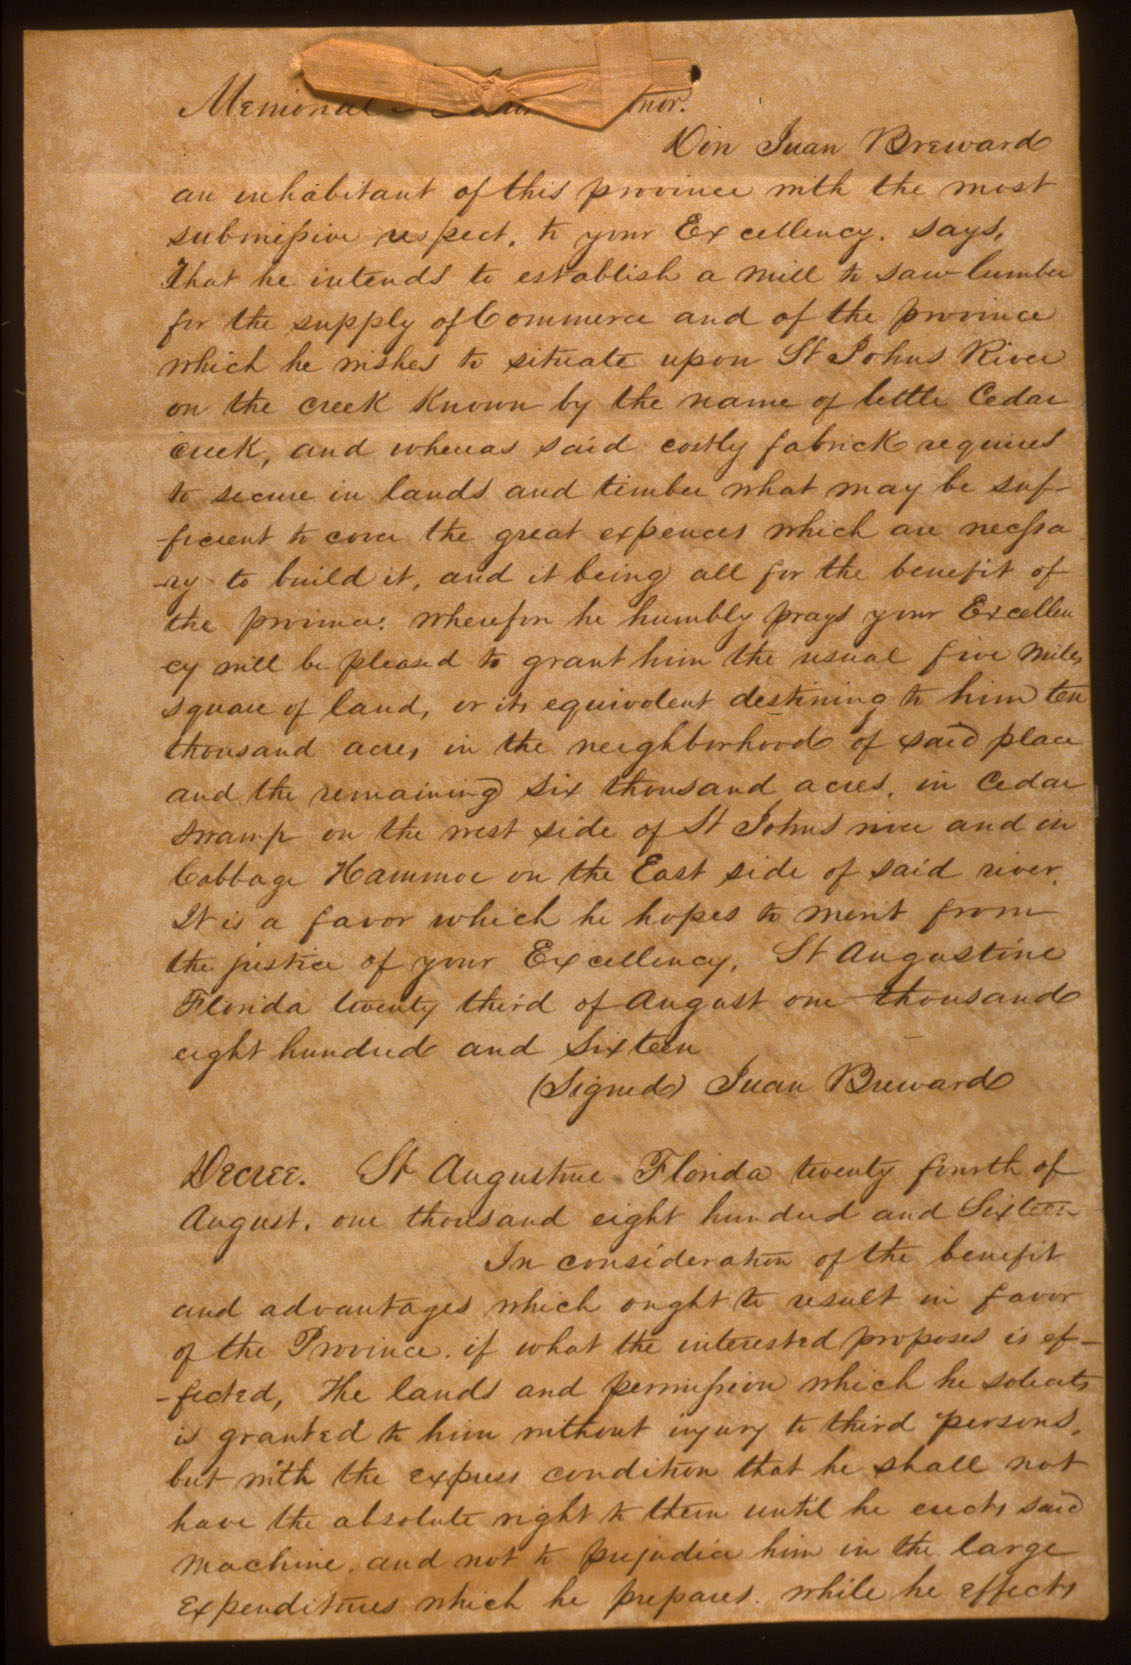 Memorial
nor.
Don Juan Breward
an inhabitant of this province with the most
submissive respect, to your Excellency. says,
That he intends to establish a mill to saw lumber
for the supply of Commerce and of the province
which he wishes to situate upon St Johns River
on the creek known by the name of little Cedar
creek, and whereas said costly fabrick requires
to secure in lands and timber what may be suf-
-ficient to cover the great expences which are necessa
-ry to build it, and it being all for the benefit of
the province: wherefore he humbly prays your Excellen
cy will be pleased to grant him the usual five miles
square of land, or its equivolent destining to him ten
thousand acres in the neighborhood of said place
and the remaining six thousand acres, in Cedar
swamp on the west side of St Johns river and in
Cabbage Hammoc on the East side of said river.
It is a favor which he hopes to merit from
the justice of your Excellency, St Augustine
Florida twenty third of August one thousand
eight hundred and sixteen
(Signed) Juan Breward
Decree. St Augustine Florida twenty fourth of
August, one thousand eight hundred and Sixteen
In consideration of the benefit
and advantages which ought to result in favor
of the Province. if what the interested proposes is ef-
-fected, The lands and permission which he solicits
is granted to him without injury to third persons,
but with the express condition that he shall not
have the absolute right to them until he erects said
machine, and not to prejudice him in the large
expenditures which he prepares. while he effects